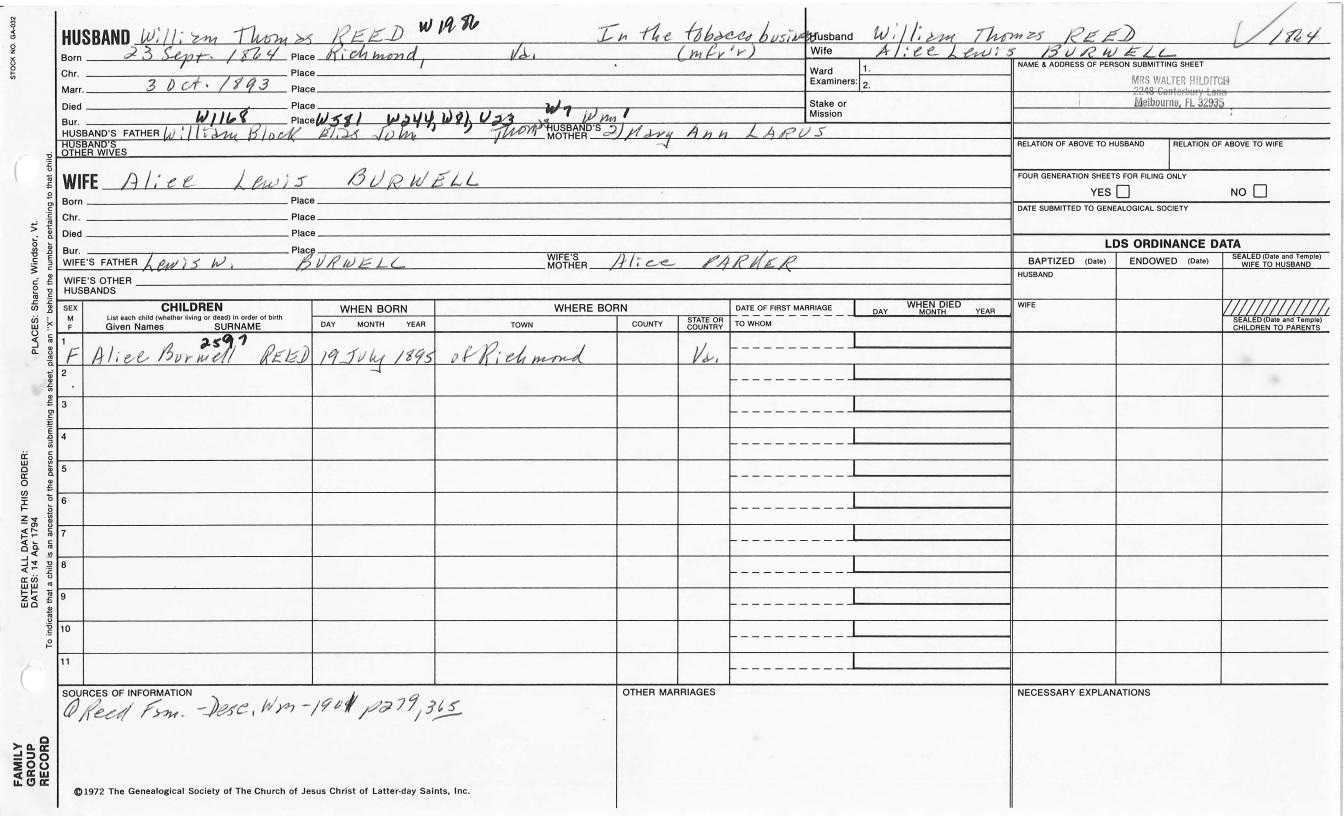 STOCK NO. GA-032
HUSBAND William Thomas REED W1986 In the tobacco business
Born 23 Sept. 1864 Place Richmond, Va. (mfr'r)
Chr. Place
Marr. 3 Oct. 1893 Place
Died Place
Bur. Place
W1168 W581 W244, W81, U23 W7 Wm1
HUSBAND'S FATHER William Block Elias John Thoms HUSBAND'S MOTHER 2) Mary Ann LARUS
HUSBAND'S OTHER WIVES
WIFE Alice Lewis BURWELL
Born Place
Chr. Place
Died Place
Bur. Place
WIFE'S FATHER Lewis W. BURWELL WIFE'S MOTHER Alice PARKER
WIFE'S OTHER HUSBANDS
Husband William Thomas REED 1864
Wife Alice Lewis BURWELL
Ward Examiners: 1.
2.
Stake or Mission
NAME & ADDRESS OF PERSON SUBMITTING SHEET
MRS WALTER HILDITCH
2248 Canterbury Lane
Melbourne, FL 32935
RELATION OF ABOVE TO HUSBAND RELATION OF ABOVE TO WIFE
FOUR GENERATION SHEETS FOR FILING ONLY
YES NO
DATE SUBMITTED TO GENEALOGICAL SOCIETY
LDS ORDINANCE DATA
BAPTIZED (Date) ENDOWED (Date) SEALED (Date and Temple) WIFE TO HUSBAND
HUSBAND
WIFE
SEALED (Date and Temple) CHILDREN TO PARENTS
SEX M F
CHILDREN
List each child (whether living or dead) in order of birth
Given Names SURNAME
WHEN BORN
DAY MONTH YEAR
WHERE BORN
TOWN COUNTY STATE OR COUNTRY
DATE OF FIRST MARRIAGE
TO WHOM
WHEN DIED
DAY MONTH YEAR
2597
1 F Alice Burwell REED 19 July 1895 of Richmond Va.
2
3
4
5
6
7
8
9
10
11
SOURCES OF INFORMATION
Reed Fam. - Desc. Wm - 1901 p279, 365
OTHER MARRIAGES
NECESSARY EXPLANATIONS
©1972 The Genealogical Society of The Church of Jesus Christ of Latter-day Saints, Inc.
FAMILY GROUP RECORD
ENTER ALL DATA IN THIS ORDER:
DATES: 14 Apr 1794
PLACES: Sharon, Windsor, Vt.
To indicate that a child is an ancestor of the person submitting the sheet, place an "X" behind the number pertaining to that child.